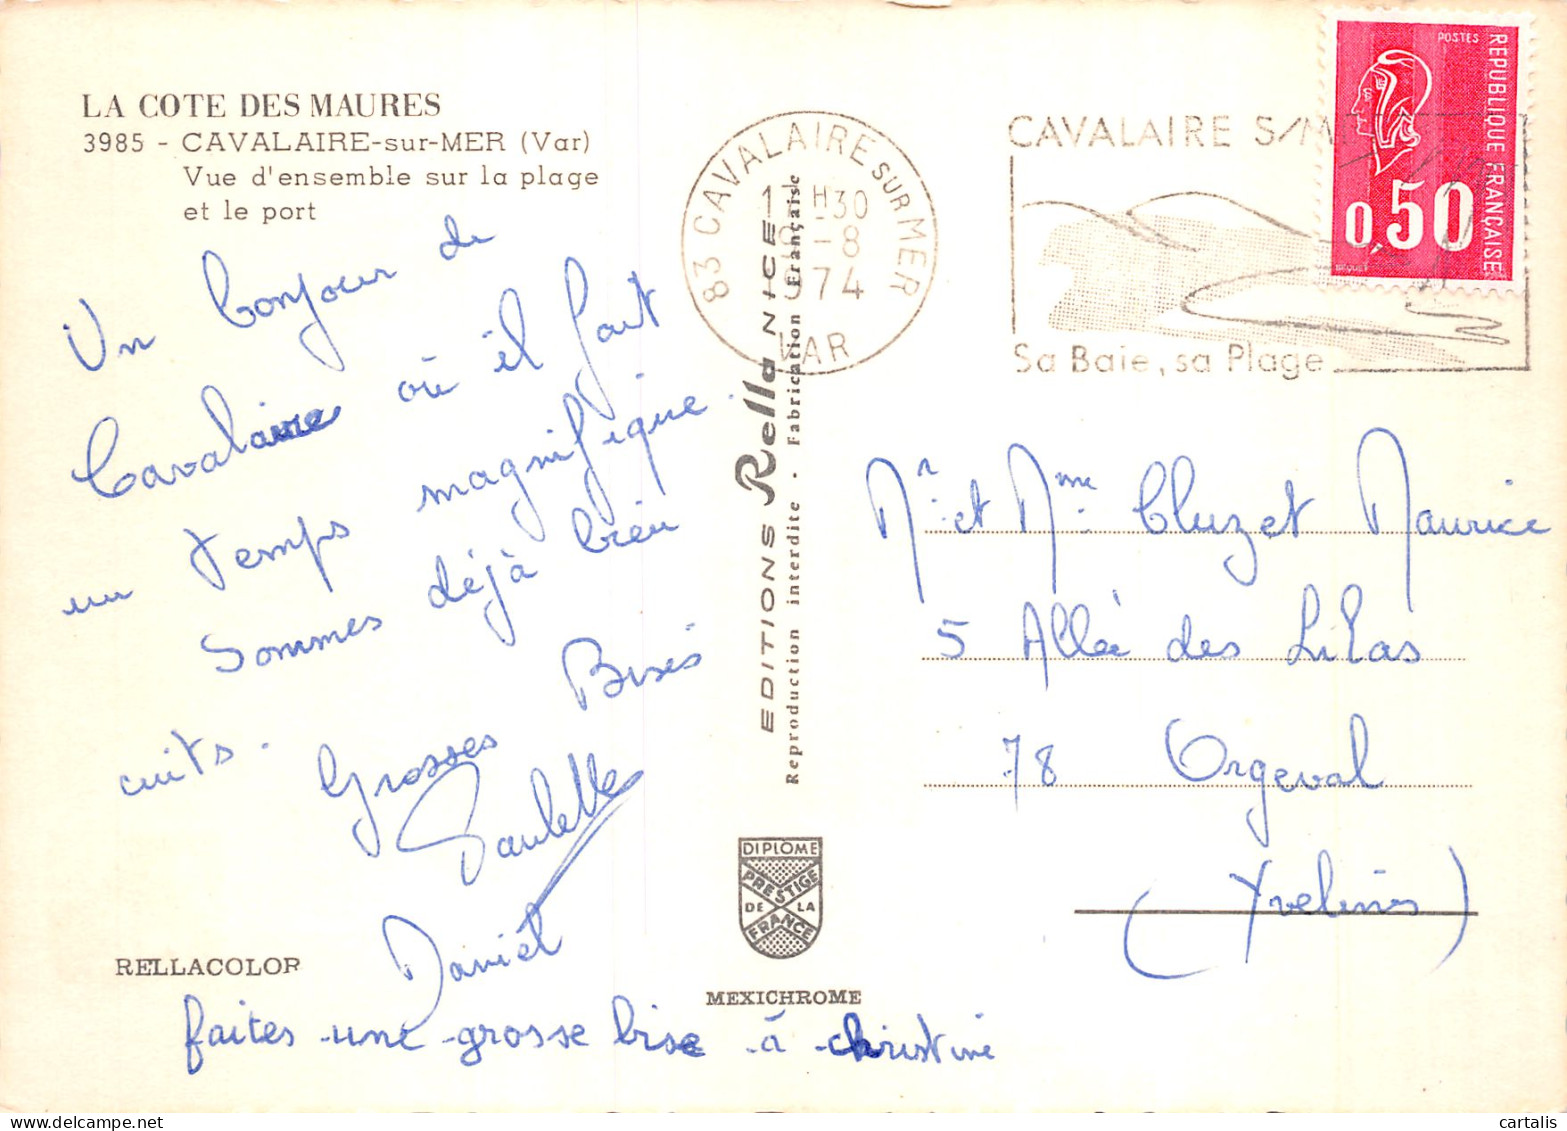 LA COTE DES MAURES
3985 - CAVALAIRE-sur-MER (Var)
Vue d'ensemble sur la plage
et le port
Un bonjour de
Cavalaire où il fait
un temps magnifique.
Sommes déjà bien
cuits.
Grosses Bises
Paulette
Daniel
faites une grosse bise à christine
RELLACOLOR
EDITIONS Rella NICE
Reproduction interdite · Fabrication Française
DIPLOME
PRESTIGE
DE LA
FRANCE
MEXICHROME
83 CAVALAIRE SUR MER
H30
-8
974
VAR
CAVALAIRE S/M
Sa Baie, sa Plage
POSTES
REPUBLIQUE FRANÇAISE
0,50
BEQUET
Mr. et Mme. Cluzet Maurice
5 Allée des Lilas
78 Orgeval
(Yvelines)
cartalis